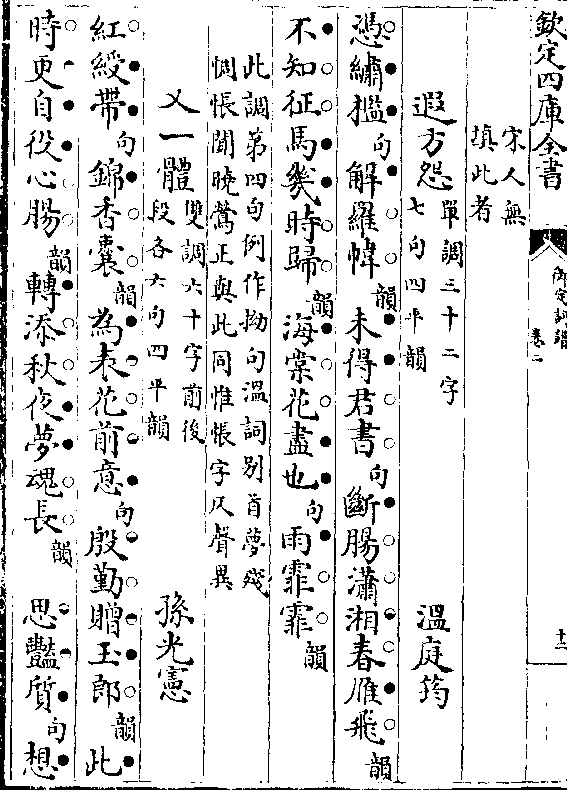 欽定四庫全書
御定詞譜
卷二
十二
宋人無
填此者
遐方怨 單調三十二字
七句四平韻 溫庭筠
憑繡檻句解羅幃韻未得君書句斷腸瀟湘春雁飛韻
不知征馬幾時歸韻海棠花盡也句雨霏霏韻
此調第四句例作拗句溫詞別首夢殘
惆悵聞曉鶯正與此同惟悵字仄聲異
又一體 雙調六十字前後
段各六句四平韻 孫光憲
紅綬帶句錦香囊韻為表花前意句殷勤贈玉郎韻此
時更自役心腸韻轉添秋夜夢魂長韻 思豔質句想